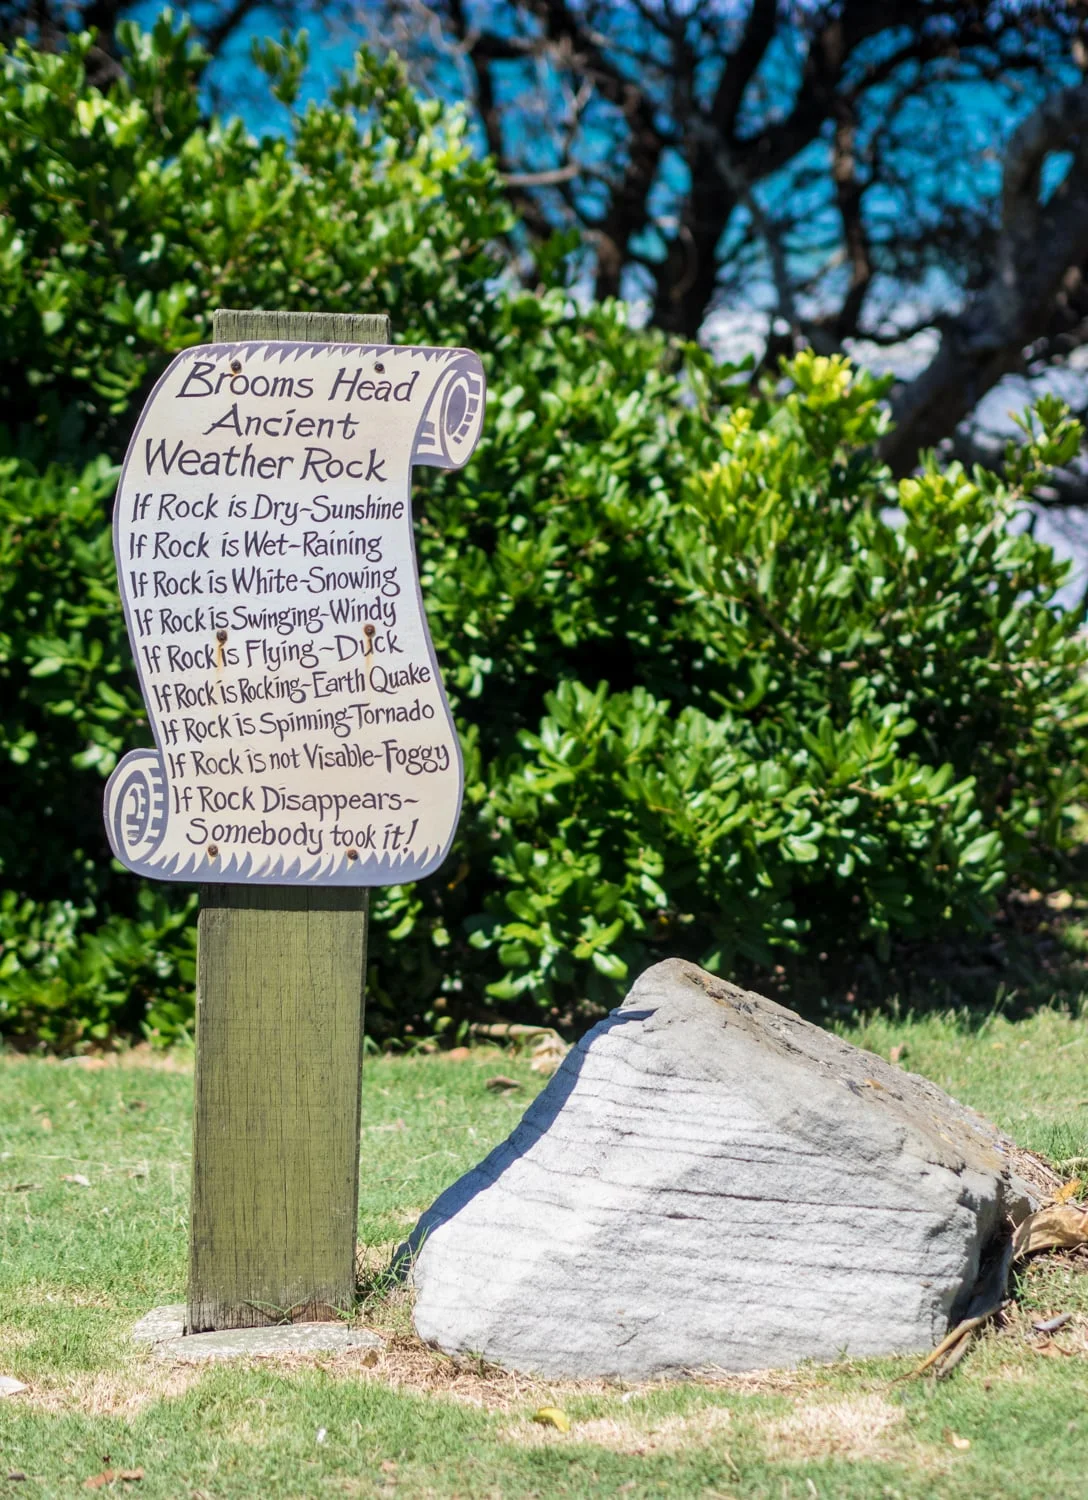 Brooms Head
Ancient
Weather Rock
If Rock is Dry~Sunshine
If Rock is Wet~Raining
If Rock is White~Snowing
If Rock is Swinging~Windy
If Rock is Flying~Duck
If Rock is Rocking~Earth Quake
If Rock is Spinning~Tornado
If Rock is not Visable~Foggy
If Rock Disappears~
Somebody took it!